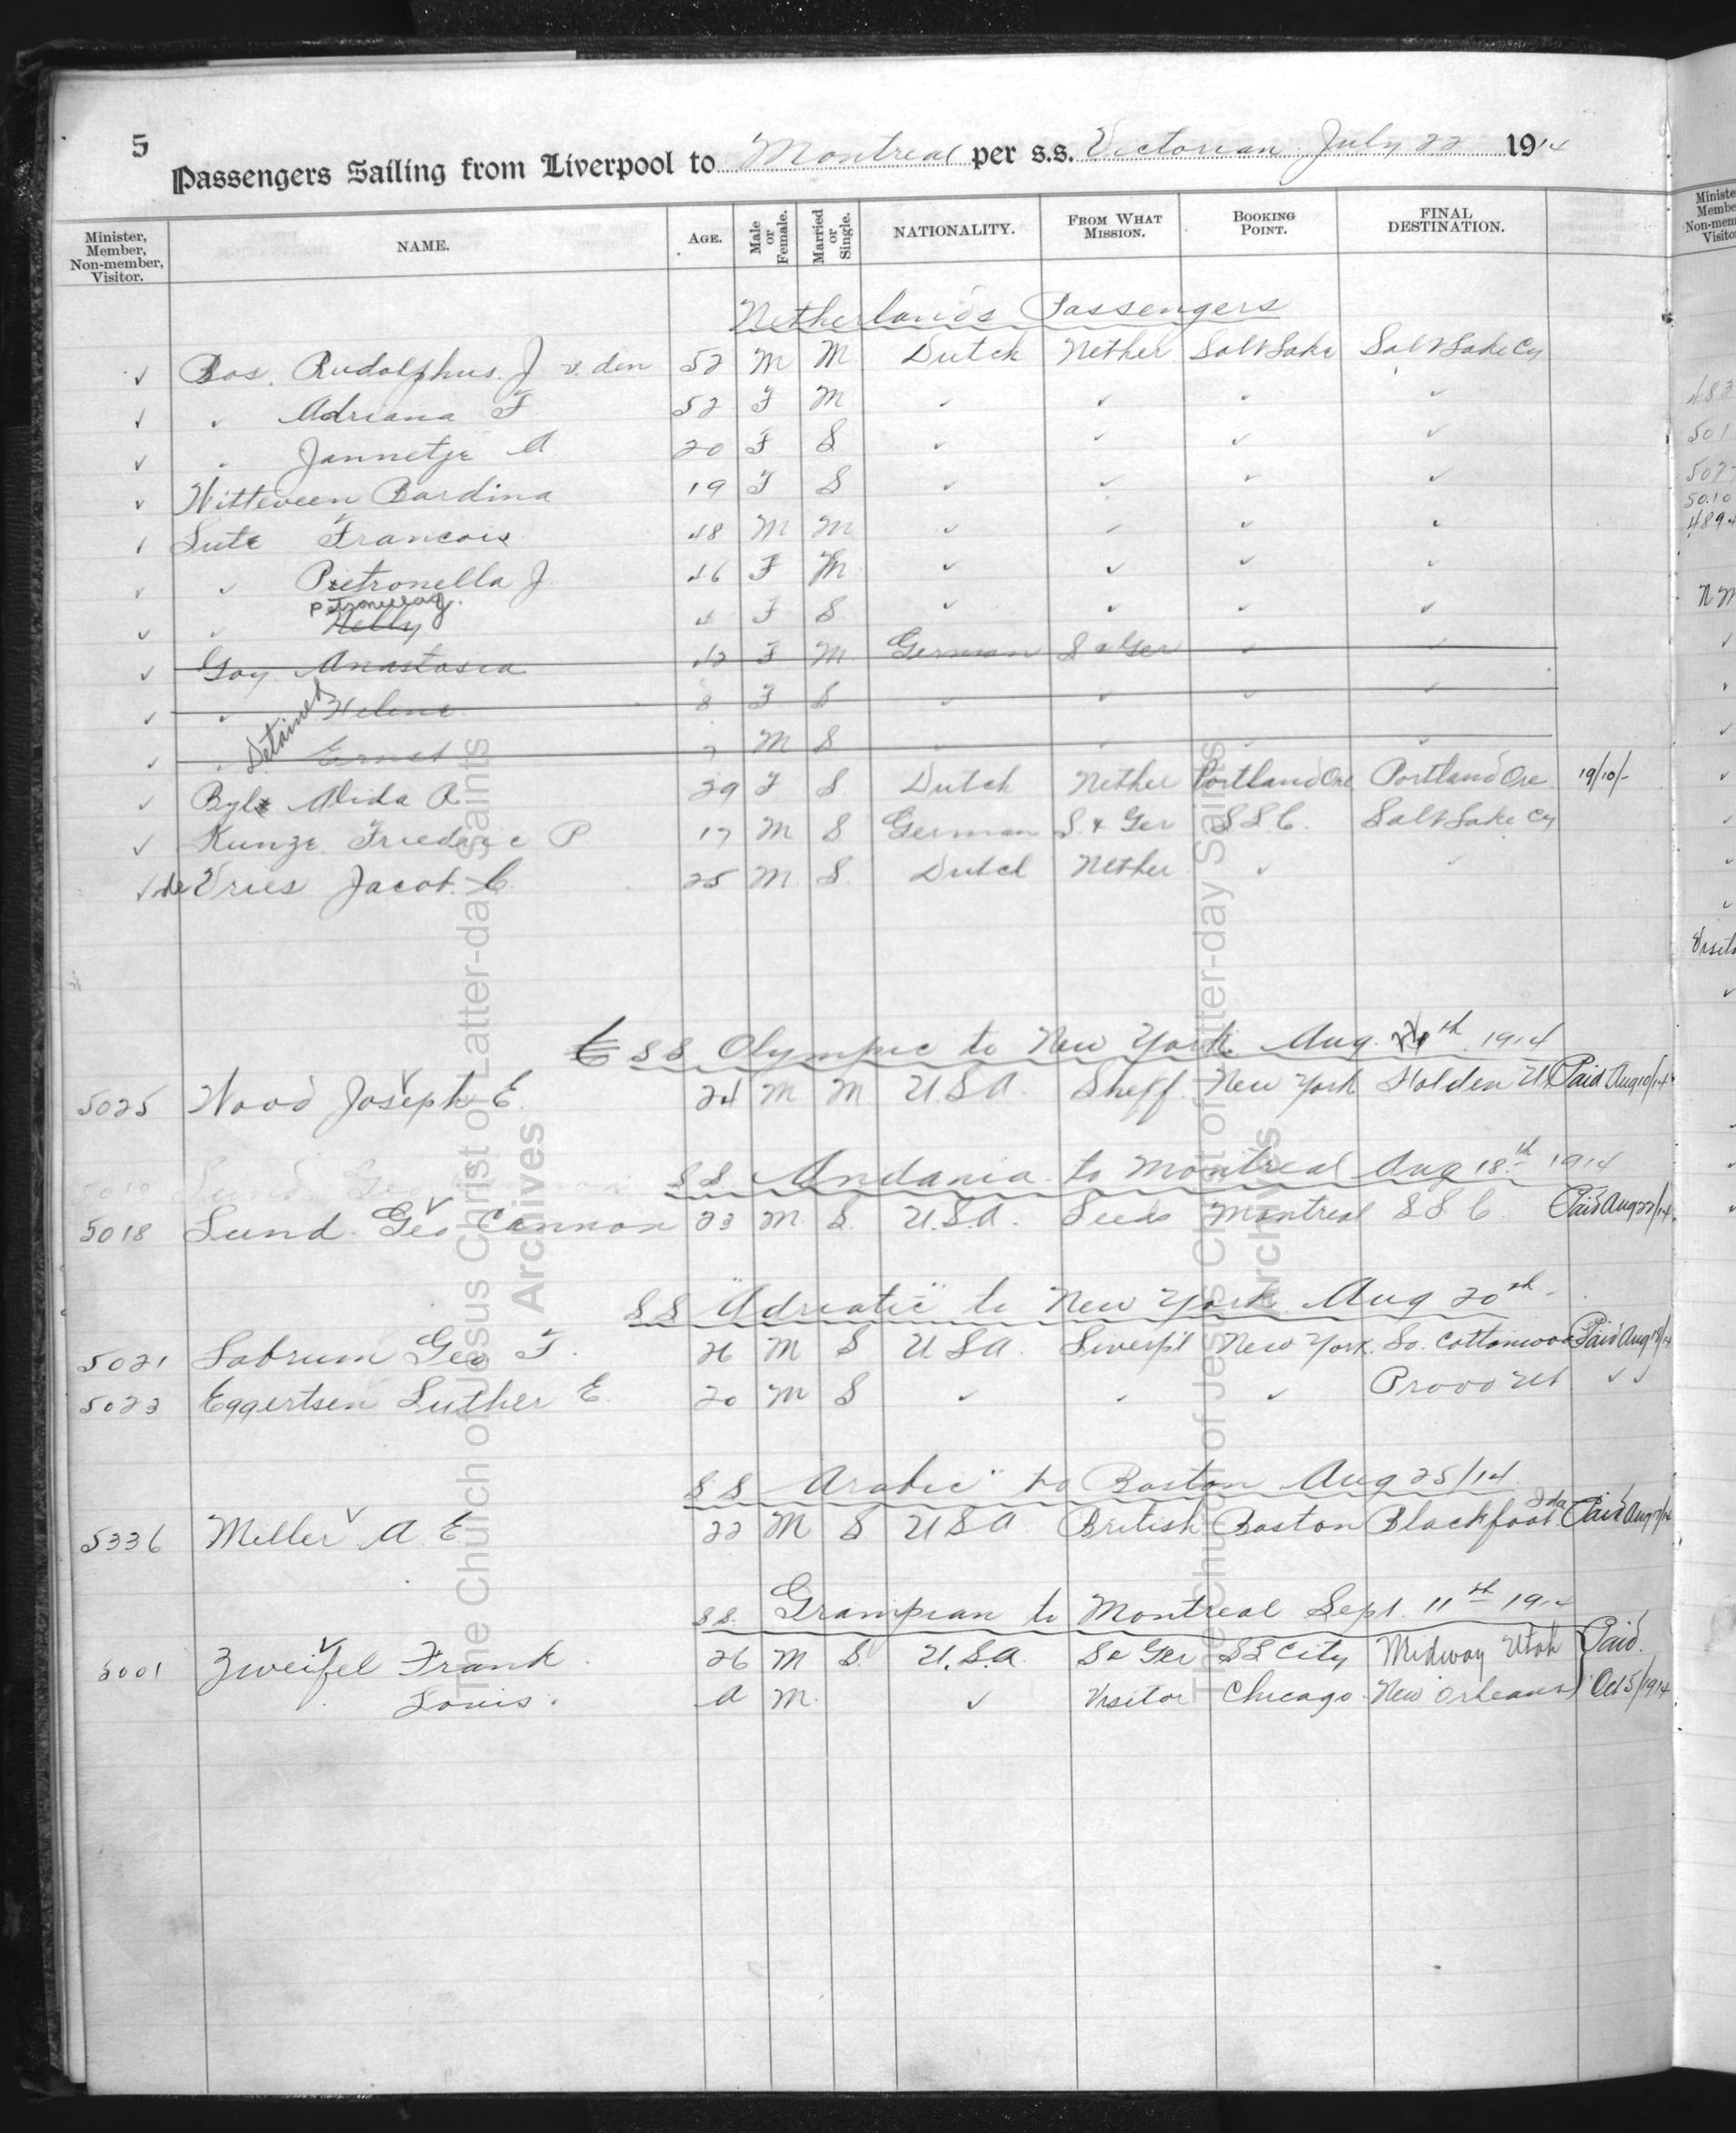 5
Passengers Sailing from Liverpool to Montreal per s.s. Victorian July 22 1914
Minister, Member, Non-member, Visitor. NAME. AGE. Male or Female. Married or Single. NATIONALITY. FROM WHAT MISSION. BOOKING POINT. FINAL DESTINATION.
Netherlands Passengers
✓ Bos. Rudolphus. J v. den 52 M M Dutch Nether Salt Lake Salt Lake Cy
✓ " Adriana F 52 F M ✓ ✓ ✓ ✓
✓ " Jannetje A 20 F S ✓ ✓ ✓ ✓
✓ Witteveen Bardina 19 F S ✓ ✓ ✓ ✓
✓ Lute Francois 48 M M ✓ ✓ ✓ ✓
✓ ✓ Pietronella J 46 F M ✓ ✓ ✓ ✓
Petronella J.
✓ ✓ Nelly 4 F S ✓ ✓ ✓ ✓
✓ Goy Anastasia 42 F M German S & Ger ✓ ✓
✓ ✓ Helene 8 F S ✓ ✓ ✓ ✓
Detained
✓ " Ernst 7 M S ✓ ✓ ✓ ✓
✓ Byl Alida A 29 F S Dutch Nether Portland Ore Portland Ore 19/10/-
✓ Kunze Friedric P 17 M S German S. & Ger S L C. Salt Lake Cy
✓ de Vries Jacob. C. 25 M S. Dutch Nether ✓ ✓
S S Olympic to New York. Aug. th 1914
5025 Wood Joseph E. 24 M M U.S.A. Sheff. New York Holden U. Paid Aug 10/14
S S Andania to Montreal Aug 18th 1914
5018 Lund Geo Cannon 23 M. S. U.S.A. Leeds Montreal S L C. Paid Aug 22/14
S S "Adriatic" to New York Aug 20th
5021 Labrum Geo F. 26 M S U.S.A. Liverp'l New York. So. Cottonwood Paid Aug 18/14
5023 Eggertsen Luther E. 20 M S ✓ ✓ ✓ Provo Ut ✓ ✓
S S Arabic" to Boston Aug 25/14
5336 Miller A E 22 M S U S A British Boston Blackfoot Ida Paid Aug
s.s. Grampian to Montreal Sept. 11th 1914
5001 Zweifel Frank 26 M S. U.S.A. S & Ger S L City Midway Utah Paid.
Louis. A M. ✓ Visitor Chicago New Orleans Oct 5/1914
Minister Member Non-member Visitor
483
501
507
5010
489
N M
Visito
The Church of Jesus Christ of Latter-day Saints
Archives
The Church of Jesus Christ of Latter-day Saints
Archives